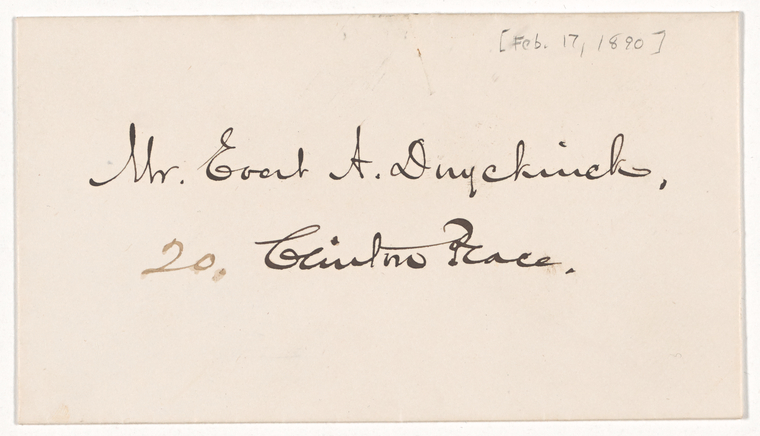 [Feb. 17, 1890]
Mr. Evert A. Duyckinck,
20, Clinton Place.